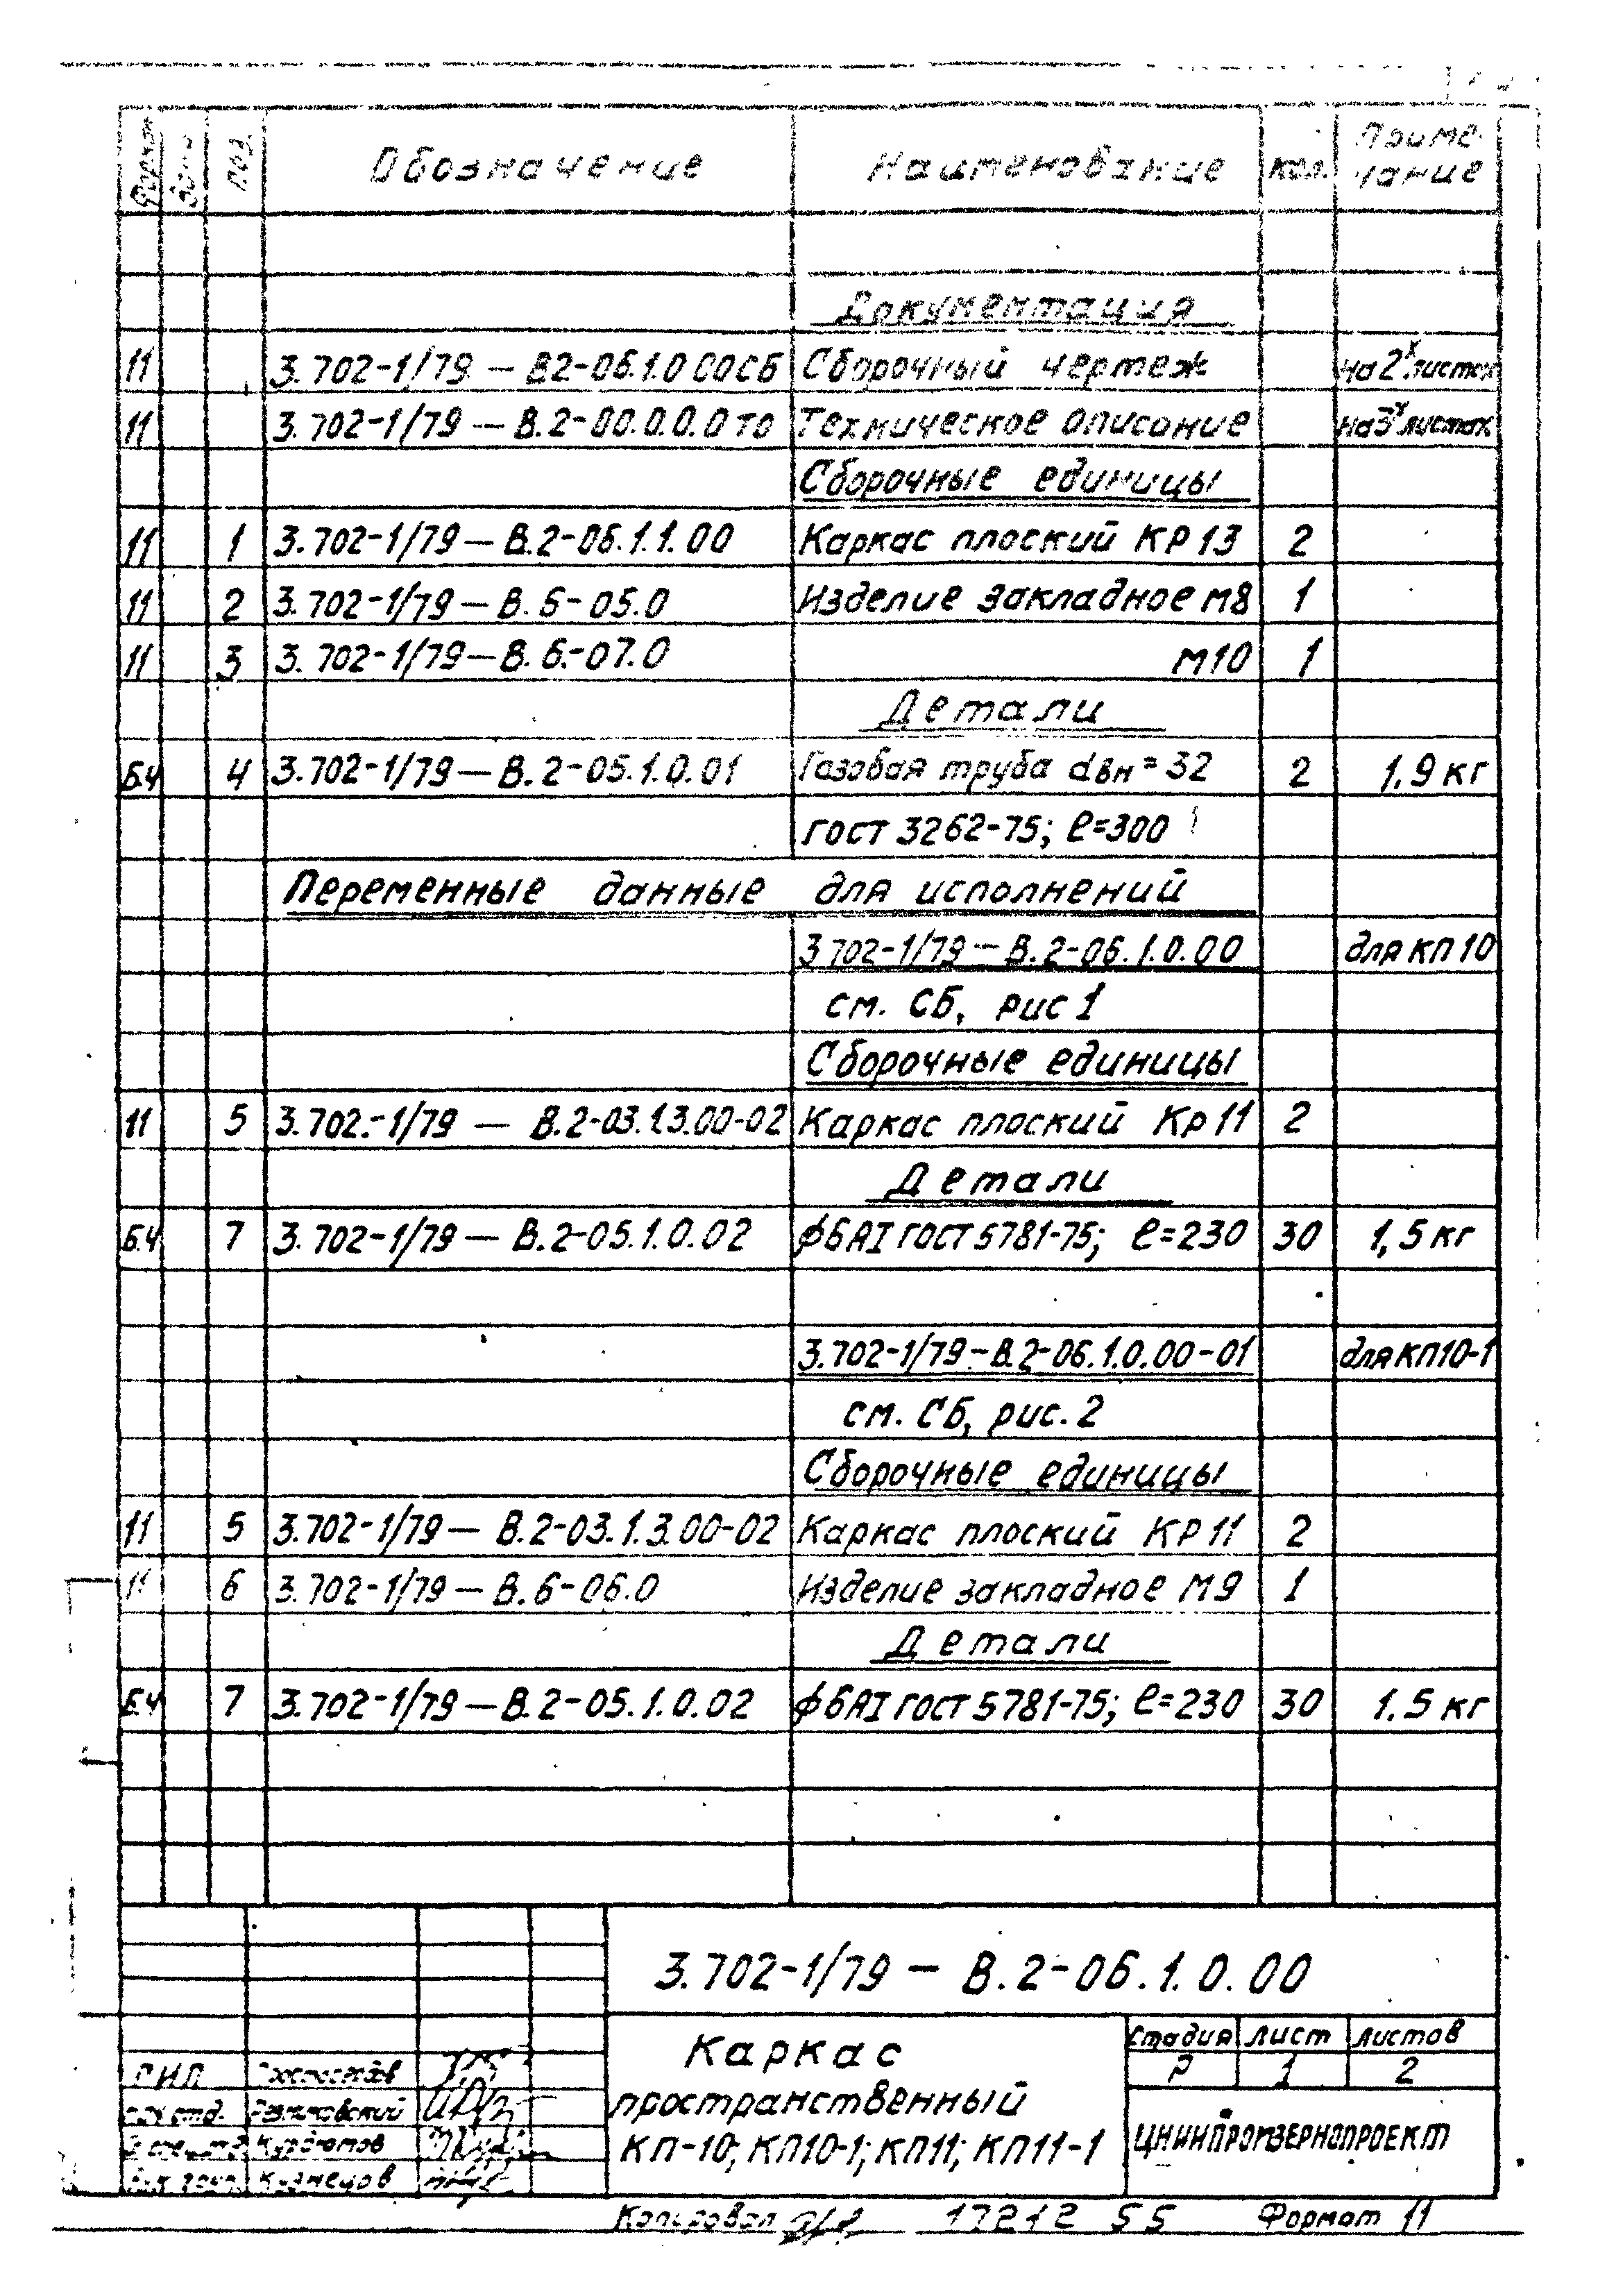 Формат Зона Поз. Обозначение Наименование Кол. Приме-
чание
Документация
11 3.702-1/79 — В2-06.1.0 00СБ Сборочный чертеж на 2х листах
11 3.702-1/79 — В.2-00.0.0.0 ТО Техническое описание на 3х листах
Сборочные единицы
11 1 3.702-1/79 — В.2-06.1.1.00 Каркас плоский КР13 2
11 2 3.702-1/79 — В.6-05.0 Изделие закладное М8 1
11 3 3.702-1/79 — В.6.-07.0 М10 1
Детали
Б.Ч 4 3.702-1/79 — В.2-05.1.0.01 Газовая труба dвн = 32 2 1.9 кг
ГОСТ 3262-75; ℓ=300
Переменные данные для исполнений
3.702-1/79 — В.2-06.1.0.00 для КП10
см. СБ, рис 1
Сборочные единицы
11 5 3.702.-1/79 — В.2-03.1.3.00-02 Каркас плоский Кр11 2
Детали
Б.Ч 7 3.702-1/79 — В.2-05.1.0.02 ф6АI ГОСТ 5781-75; ℓ=230 30 1,5 кг
3.702-1/79-В.2-06.1.0.00-01 для КП10-1
см. СБ, рис. 2
Сборочные единицы
11 5 3.702-1/79 — В.2-03.1.3.00-02 Каркас плоский КР11 2
11 6 3.702-1/79 — В.6-06.0 Изделие закладное М9 1
Детали
Б.Ч 7 3.702-1/79 — В.2-05.1.0.02 ф6АI ГОСТ 5781-75; ℓ=230 30 1.5 кг
3.702-1/79 — В.2-06.1.0.00
Каркас
пространственный
КП-10; КП10-1; КП11; КП11-1
Стадия Лист Листов
Р 1 2
ЦНИИПРОМЗЕРНОПРОЕКТ
ГИП
Нач отд.
Курдютов
Кузнецов
Копировал 17212 55 Формат 11